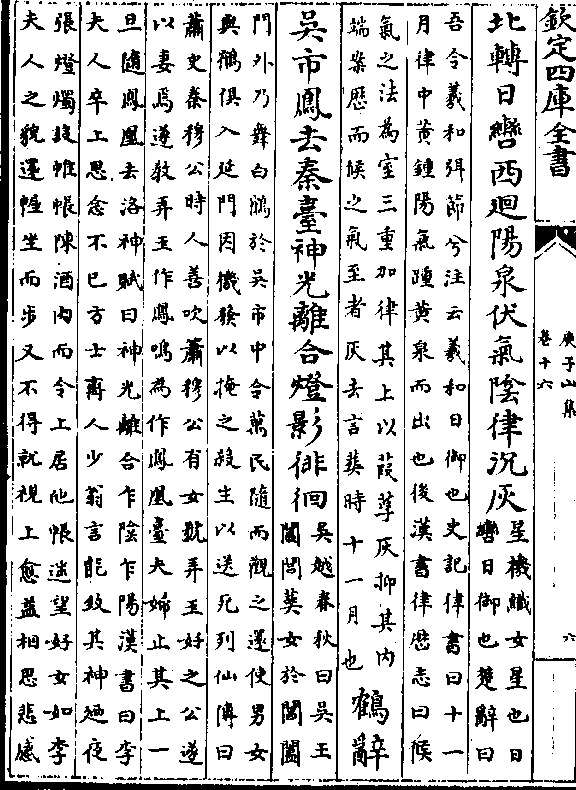 欽定四庫全書
庾子山集
卷十六
六
北轉日轡西迴陽泉伏氣陰律沉灰
星機織女星也日
轡日御也楚辭曰
吾令羲和弭節兮注云羲和日御也史記律書曰十一
月律中黃鍾陽氣踵黃泉而出也後漢書律厯志曰候
氣之法為室三重加律其上以葭莩灰抑其内
端案厯而候之氣至者灰去言葬時十一月也
鶴辭
吳市鳳去秦臺神光離合燈影徘徊
吳越春秋曰吳王
闔閭葬女於閶闔
門外乃舞白鶴於吳市中令萬民隨而觀之遂使男女
與鶴俱入廷門因機發以掩之殺生以送死列仙傳曰
蕭史秦穆公時人善吹簫穆公有女號弄玉好之公遂
以妻焉遂教弄玉作鳳鳴為作鳳凰臺夫婦止其上一
旦隨鳳凰去洛神賦曰神光離合乍陰乍陽漢書曰李
夫人卒上思念不已方士齊人少翁言能致其神廼夜
張燈燭設帷帳陳酒肉而令上居他帳遙望好女如李
夫人之貌還幄坐而步又不得就視上愈益相思悲感